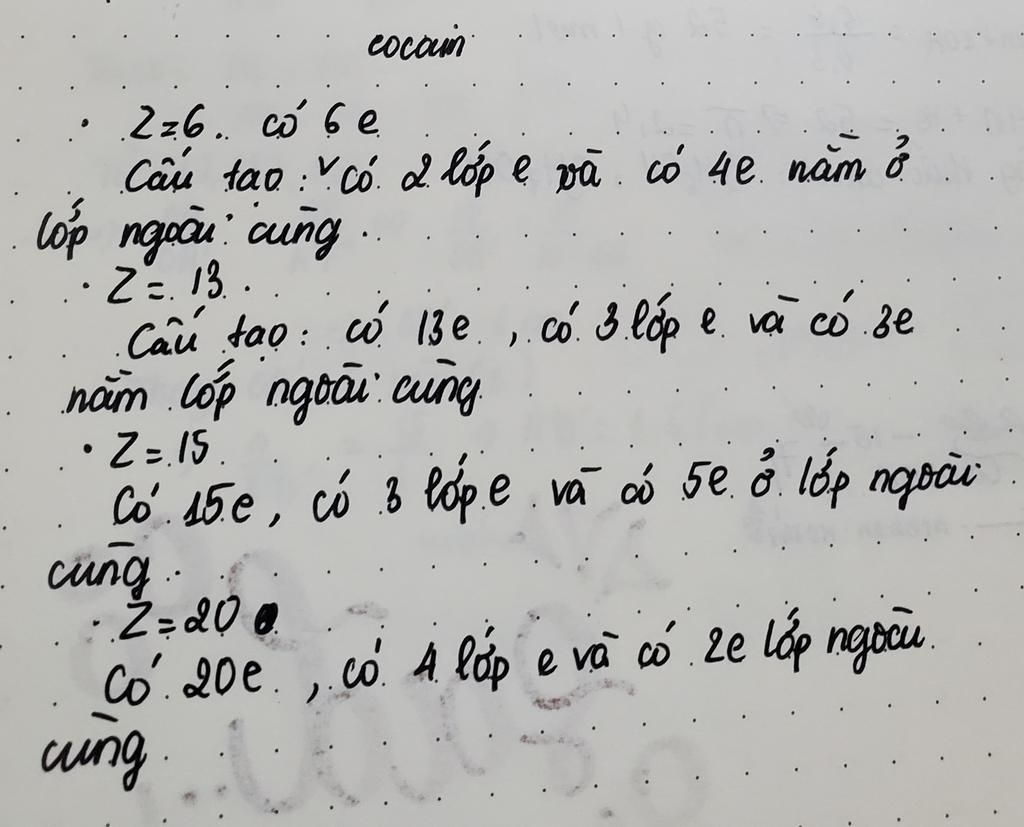 cocain
· Z=6. có 6e
Cấu tạo: có 2 lớp e và có 4e nằm ở
lớp ngoài cùng.
· Z = 13.
Cấu tạo: có 13e, có 3 lớp e và có 3e
nằm lớp ngoài cùng
· Z = 15
Có 15e, có 3 lớp e và có 5e ở lớp ngoài
cùng.
· Z = 20
Có 20e, có 4 lớp e và có 2e lớp ngoài
cùng